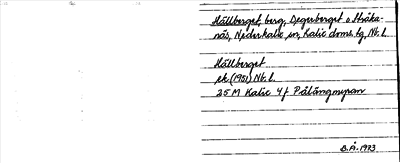 Hällberget, berg, Degerberget o. Stråka-
näs, Nederkalix sn, Kalix doms. tg, Nb. l.
Hällberget
ek (1951) Nb. l.
25 M Kalix 4 f Pålängmyran
B.Å. 1973